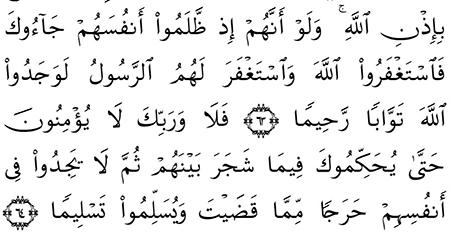 بِإِذْنِ ٱللَّهِ ۚ وَلَوْ أَنَّهُمْ إِذ ظَّلَمُوٓا۟ أَنفُسَهُمْ جَآءُوكَ
فَٱسْتَغْفَرُوا۟ ٱللَّهَ وَٱسْتَغْفَرَ لَهُمُ ٱلرَّسُولُ لَوَجَدُوا۟
ٱللَّهَ تَوَّابًا رَّحِيمًا ٦٣ فَلَا وَرَبِّكَ لَا يُؤْمِنُونَ
حَتَّىٰ يُحَكِّمُوكَ فِيمَا شَجَرَ بَيْنَهُمْ ثُمَّ لَا يَجِدُوا۟ فِىٓ
أَنفُسِهِمْ حَرَجًا مِّمَّا قَضَيْتَ وَيُسَلِّمُوا۟ تَسْلِيمًا ٦٤